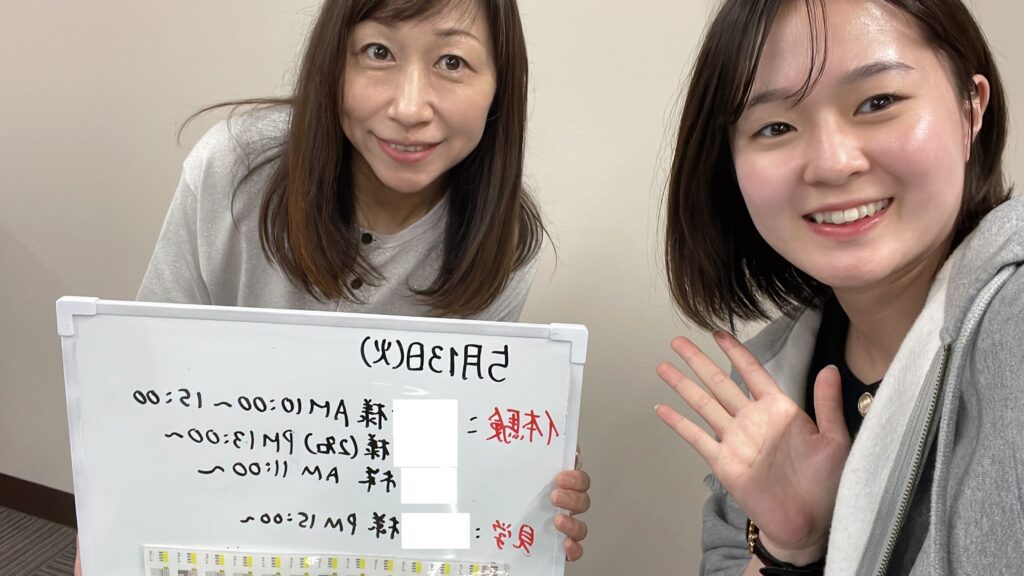 5月13日(火)
体験: 様 AM10:00~15:00
様(2名) PM13:00~
様 AM 11:00~
見学: 様 PM 15:00~